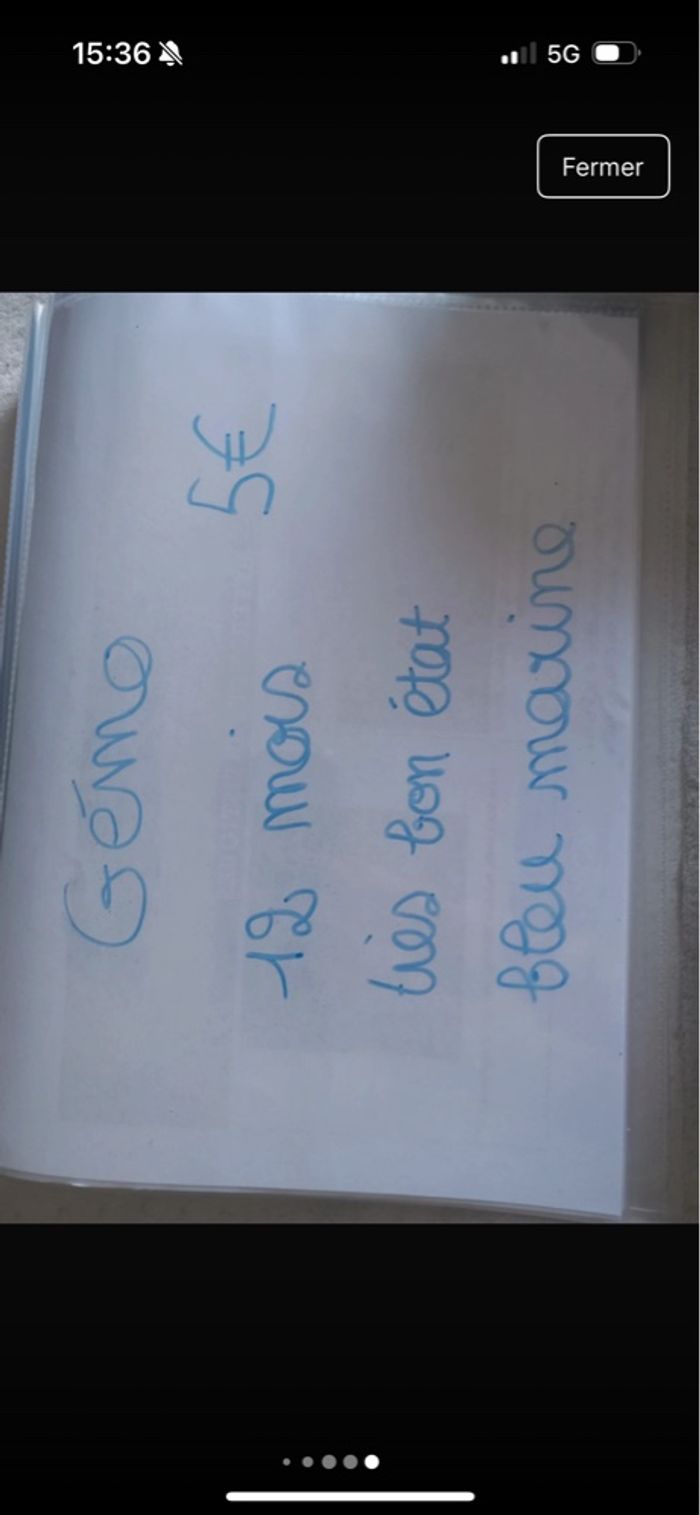 15:36
5G
Fermer
Gémo
5€
12 mois
très bon état
bleu marine